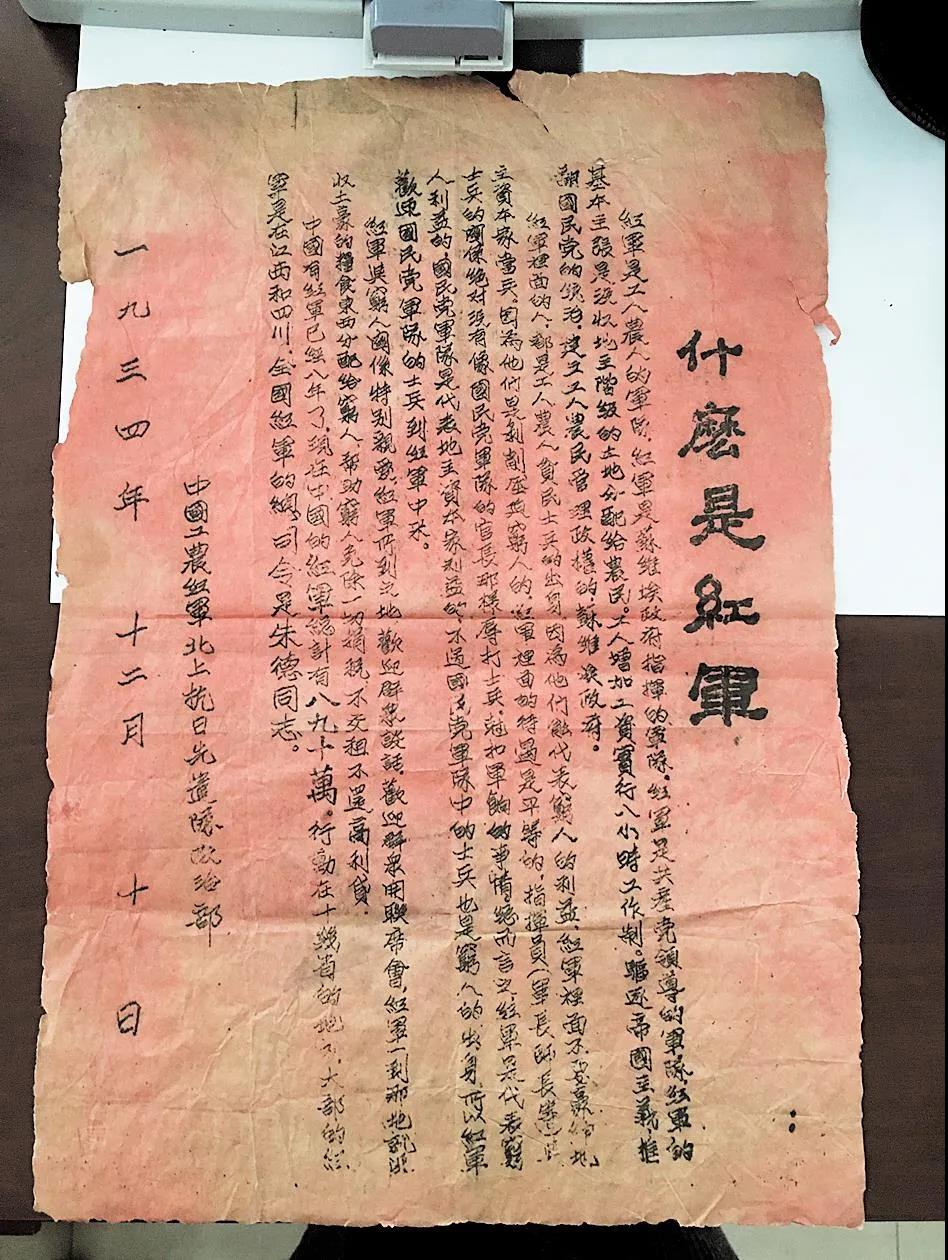 什麽是紅軍
紅軍是工人農人的軍隊，紅軍是蘇維埃政府指揮的軍隊，紅軍是共產党領導的軍隊，紅軍的
基本主張是没收地主階級的土地分配給農民。工人增加工資實行八小時工作制。驅逐帝國主義推
翻國民党的統治，建立工人農民管理政權的，蘇維埃政府。
紅軍裡面的人，都是工人農人貧民士兵的出身，因為他們能代表窮人的利益，紅軍裡面不要豪紳地
主資本家當兵。因為他们是剥削壓廹窮人的，紅軍裡面的待遇是平等的，指揮員（軍長師長
士兵的關係絕對没有像國民党軍隊的官長那樣辱打士兵，尅扣軍餉的事情，總而言之，紅軍是代表窮
人利益的，國民党軍隊是代表地主資本家利益的，不過國民党軍隊中的士兵也是窮人的出身，所以紅軍
歡迎國民党軍隊的士兵到紅軍中來。
紅軍與窮人關係特别親愛，紅軍所到之地歡迎群衆談話，歡迎群衆開聯席會，紅軍一到那地就没
收土豪的糧食東西分配給窮人，帮助窮人免除一切捐税不交租不還高利貸。
中國有紅軍已經八年了，現在中國的紅軍總計有八九十萬。行動在十幾省的地方，大部的紅
軍是在江西和四川，全國紅軍的總司令是朱德同志。
中國工農紅軍北上抗日先遣隊政治部
一九三四年 十二月 十日